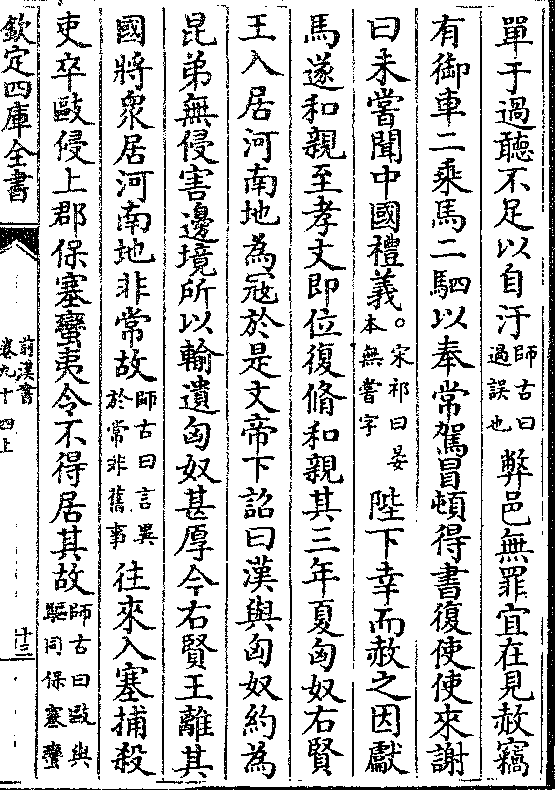 單于過聽不足以自汙師古曰過誤也弊邑無罪宜在見赦竊
有御車二乘馬二駟以奉常駕冒頓得書復使使來謝
曰未嘗聞中國禮義。宋祁曰晏本無嘗字陛下幸而赦之因獻
馬遂和親至孝文即位復脩和親其三年夏匈奴右賢
王入居河南地為寇於是文帝下詔曰漢與匈奴約為
昆弟無侵害邊境所以輸遺匈奴甚厚今右賢王離其
國將衆居河南地非常故師古曰言異於常非舊事往來入塞捕殺
吏卒敺侵上郡保塞蠻夷令不得居其故師古曰敺與驅同保塞蠻
欽定四庫全書
前漢書
卷九十四上
十三